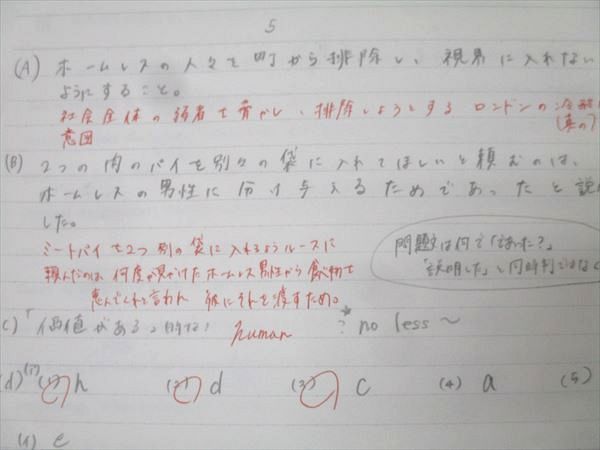 5
(A) ホームレスの人々を町から排除し、視界に入れない
ようにすること。
社会全体の弱者を脅かし、排除しようとする ロンドンの
(真の)
意図
(B) 2つの肉のパイを別々の袋に入れてほしいと頼むのは、
ホームレスの男性に分け与えるためであったと説
した。
ミートパイを2つ別の袋に入れるようルースに
頼んだのは、何度か見かけたホームレス男性から食べ物を
恵んでくれと言われ 彼にそれを渡すため。
問題文は何で「であった?」
「説明した」と同時制ではなく
C) 「価値がある」的な? human ? no less ~
(d) (1) h (2) d (3) c (4) a (5)
(1) e